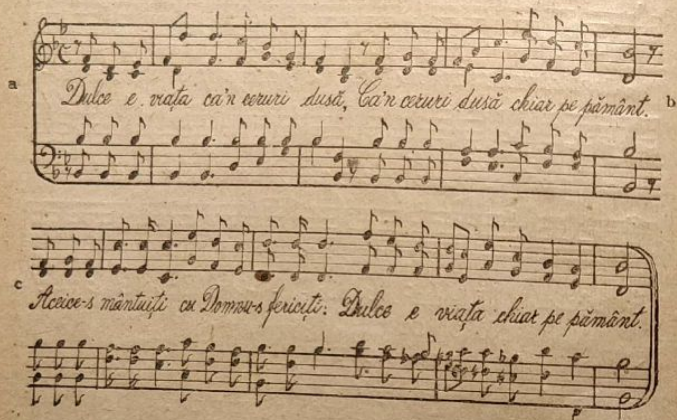 a
Dulce e viața ca'n ceruri dusă, Ca'n ceruri dusă chiar pe pământ.
b
c
Aceice-s mântuiți cu Domnu-s fericiți: Dulce e viața chiar pe pământ.